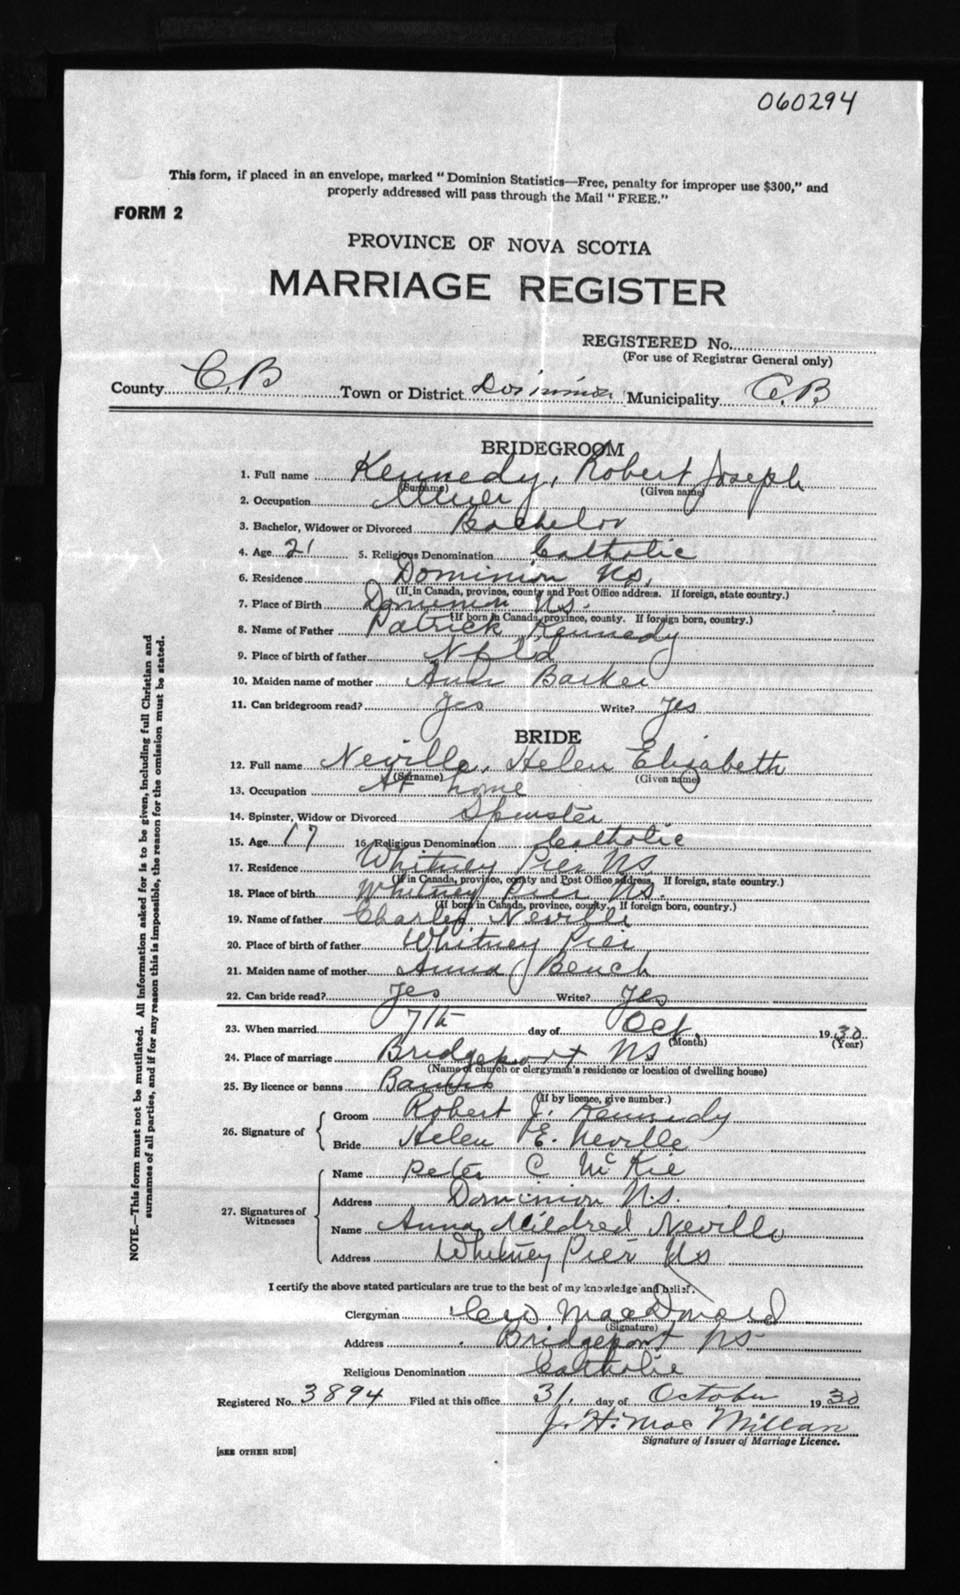 060294
This form, if placed in an envelope, marked "Dominion Statistics—Free, penalty for improper use $300," and
properly addressed will pass through the Mail "FREE."
FORM 2
PROVINCE OF NOVA SCOTIA
MARRIAGE REGISTER
REGISTERED No.
(For use of Registrar General only)
County C.B Town or District Dominion Municipality C.B
BRIDEGROOM
1. Full name Kennedy, Robert Joseph
(Surname) (Given name)
2. Occupation Miner
3. Bachelor, Widower or Divorced Bachelor
4. Age 21 5. Religious Denomination Catholic
6. Residence Dominion N.S.
(If in Canada, province, county and Post Office address. If foreign, state country.)
7. Place of Birth Dominion N.S.
(If born in Canada, province, county. If foreign born, country.)
8. Name of Father Patrick Kennedy
9. Place of birth of father Nfld
10. Maiden name of mother Barker
11. Can bridegroom read? Yes Write? Yes
BRIDE
12. Full name Neville, Helen Elizabeth
(Surname) (Given name)
13. Occupation At home
14. Spinster, Widow or Divorced Spinster
15. Age 17 16. Religious Denomination Catholic
17. Residence Whitney Pier NS
(If in Canada, province, county and Post Office address. If foreign, state country.)
18. Place of birth Whitney Pier Ns.
(If born in Canada, province, county. If foreign born, country.)
19. Name of father Charles Neville
20. Place of birth of father Whitney Pier
21. Maiden name of mother Anna Bench
22. Can bride read? Yes Write? Yes
23. When married 7th day of Oct. 1930
(Month) (Year)
24. Place of marriage Bridgeport NS
(Name of church or clergyman's residence or location of dwelling house)
25. By licence or banns Banns
(If by licence, give number.)
26. Signature of Groom Robert J. Kennedy
Bride Helen E. Neville
27. Signatures of Witnesses Name Peter C McKie
Address Dominion N.S.
Name Anna Mildred Neville
Address Whitney Pier Ns
I certify the above stated particulars are true to the best of my knowledge and belief.
Clergyman Leo MacDonald
(Signature)
Address Bridgeport NS
Religious Denomination Catholic
Registered No. 3894 Filed at this office 31 day of October 1930
J. H. MacMillan
Signature of Issuer of Marriage Licence.
[SEE OTHER SIDE]
NOTE.—This form must not be mutilated. All information asked for is to be given, including full Christian and
surnames of all parties, and if for any reason this is impossible, the reason for the omission must be stated.